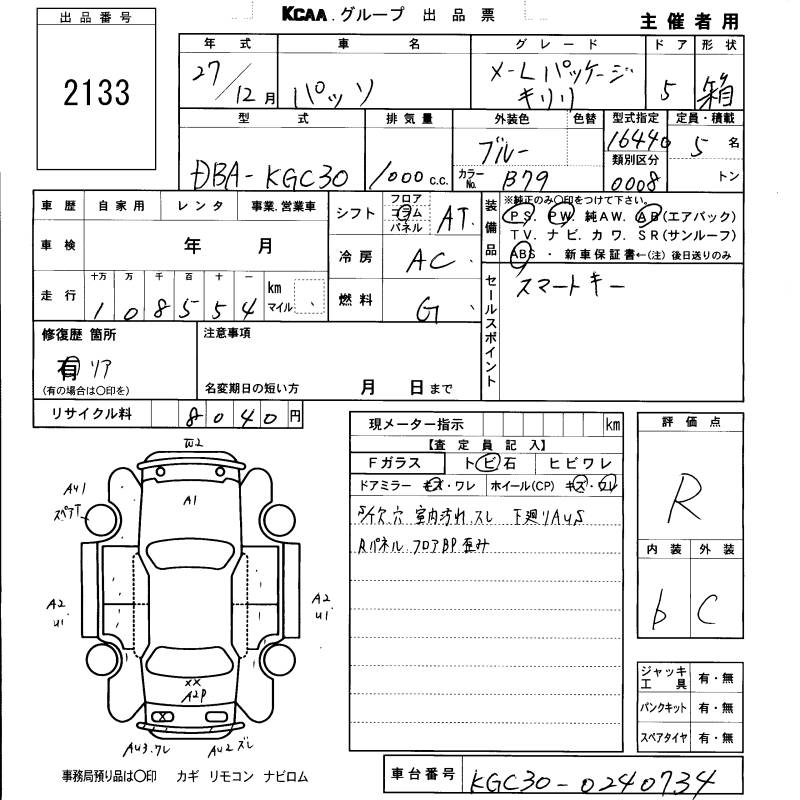 出品番号
2133
KCAA.グループ 出品票
主催者用
年式 車名 グレード ドア 形状
27/12月 パッソ X-Lパッケージ キリリ 5 箱
型式 排気量 外装色 色替 型式指定 定員・積載
DBA-KGC30 1000 c.c. ブルー 16440 5 名
カラーNo. B79 類別区分 0008 トン
車歴 自家用 レンタ 事業.営業車
車検 年 月
走行 十万 万 千 百 十 一 km マイル
1 0 8 5 5 4
シフト フロア コラム パネル AT
冷房 AC
燃料 G
装備品 ※純正のみ〇印をつけて下さい。
PS. PW. 純AW. AB(エアバック)
TV. ナビ. カワ. SR(サンルーフ)
ABS ・ 新車保証書←(注) 後日送りのみ
セールスポイント スマートキー
修復歴 箇所
有 リア
(有の場合は〇印を)
注意事項
名変期日の短い方 月 日まで
リサイクル料 8040円
現メーター指示 km
【査定員記入】
Fガラス トビ石 ヒビワレ
ドアミラー キズ・ワレ ホイール(CP) キズ・ワレ
穴 室内汚れ.スレ 下廻りAUS
Rパネル.フロアBP歪み
評価点
R
内装 外装
b C
ジャッキ工具 有・無
パンクキット 有・無
スペアタイヤ 有・無
W2
AU1
スペアT
A1
A2
U1
A2
U1
XX
A2P
X
AU3.ワレ AU2ズレ
事務局預り品は〇印 カギ リモコン ナビロム
車台番号 KGC30-0240734